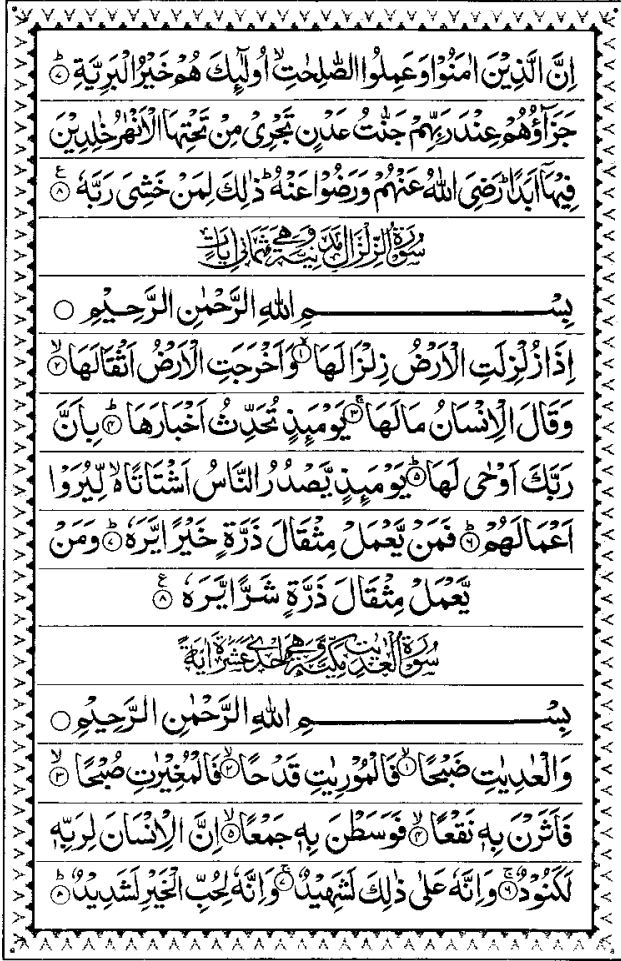 اِنَّ الَّذِيْنَ اٰمَنُوْا وَعَمِلُوا الصّٰلِحٰتِ ۙ اُولٰٓئِكَ هُمْ خَيْرُ الْبَرِيَّةِ ؕ ﴿۷﴾
جَزَآؤُهُمْ عِنْدَ رَبِّهِمْ جَنّٰتُ عَدْنٍ تَجْرِيْ مِنْ تَحْتِهَا الْاَنْهٰرُ خٰلِدِيْنَ
فِيْهَاۤ اَبَدًا ؕ رَضِيَ اللّٰهُ عَنْهُمْ وَرَضُوْا عَنْهُ ؕ ذٰلِكَ لِمَنْ خَشِيَ رَبَّهٗ ﴿۸﴾ ع
سُوْرَةُ الزِّلْزَالِ مَدَنِيَّةٌ وَّهِيَ ثَمَانِيْ اٰيَاتٍ
بِسْمِ اللّٰهِ الرَّحْمٰنِ الرَّحِيْمِ ○
اِذَا زُلْزِلَتِ الْاَرْضُ زِلْزَالَهَا ۙ ﴿۱﴾ وَاَخْرَجَتِ الْاَرْضُ اَثْقَالَهَا ۙ ﴿۲﴾
وَقَالَ الْاِنْسَانُ مَا لَهَا ۚ ﴿۳﴾ يَوْمَئِذٍ تُحَدِّثُ اَخْبَارَهَا ؕ ﴿۴﴾ بِاَنَّ
رَبَّكَ اَوْحٰى لَهَا ؕ ﴿۵﴾ يَوْمَئِذٍ يَّصْدُرُ النَّاسُ اَشْتَاتًا ۙ لِّيُرَوْا
اَعْمَالَهُمْ ؕ ﴿۶﴾ فَمَنْ يَّعْمَلْ مِثْقَالَ ذَرَّةٍ خَيْرًا يَّرَهٗ ؕ ﴿۷﴾ وَمَنْ
يَّعْمَلْ مِثْقَالَ ذَرَّةٍ شَرًّا يَّرَهٗ ﴿۸﴾ ع
سُوْرَةُ الْعٰدِيٰتِ مَكِّيَّةٌ وَّهِيَ اِحْدٰى عَشْرَةَ اٰيَةً
بِسْمِ اللّٰهِ الرَّحْمٰنِ الرَّحِيْمِ ○
وَالْعٰدِيٰتِ ضَبْحًا ۙ ﴿۱﴾ فَالْمُوْرِيٰتِ قَدْحًا ۙ ﴿۲﴾ فَالْمُغِيْرٰتِ صُبْحًا ۙ ﴿۳﴾
فَاَثَرْنَ بِهٖ نَقْعًا ۙ ﴿۴﴾ فَوَسَطْنَ بِهٖ جَمْعًا ۙ ﴿۵﴾ اِنَّ الْاِنْسَانَ لِرَبِّهٖ
لَكَنُوْدٌ ۚ ﴿۶﴾ وَاِنَّهٗ عَلٰى ذٰلِكَ لَشَهِيْدٌ ۚ ﴿۷﴾ وَاِنَّهٗ لِحُبِّ الْخَيْرِ لَشَدِيْدٌ ؕ ﴿۸﴾